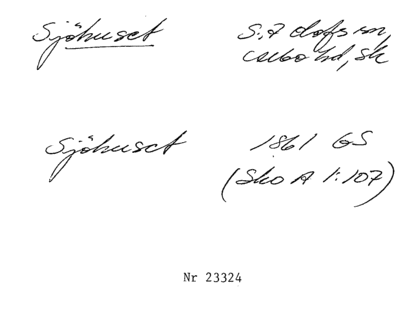 Sjöhuset S:t Olofs sn,
Albo hd, Sk
Sjöhuset 1861 GS
(Sko A 1:107)
Nr 23324